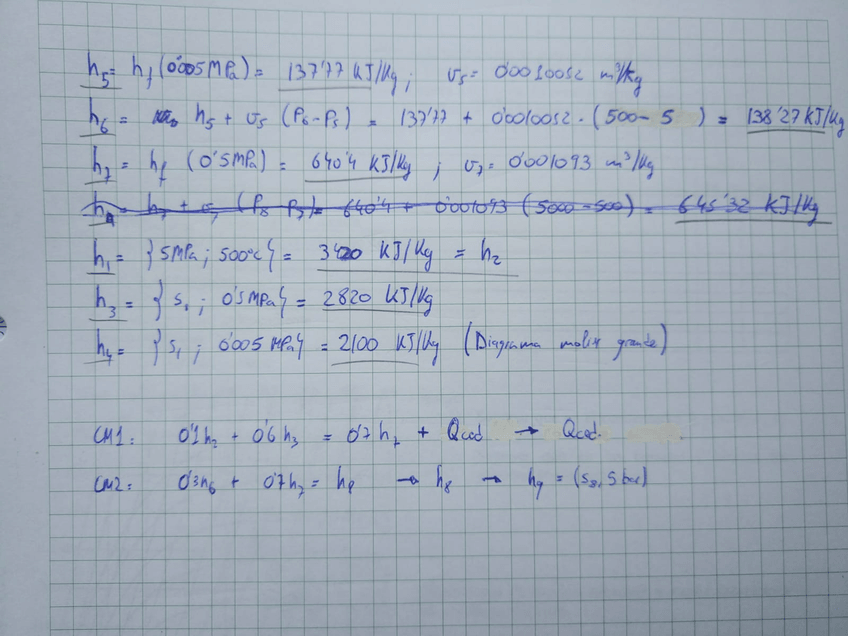 h5 = hf (0'005 MPa) = 137'77 KJ/Kg ; v5 = 0'0010052 m³/kg
h6 = h5 + v5 (P6 - P5) = 137'77 + 0'0010052 · (500 - 5) = 138'27 KJ/Kg
h7 = hf (0'5 MPa) = 640'4 KJ/Kg ; v7 = 0'001093 m³/Kg
h9 = h7 + v7 (P8 - P7) = 640'4 + 0'001093 (5000 - 500) = 645'32 KJ/Kg
h1 = {5MPa ; 500ºC} = 3420 KJ/Kg = h2
h3 = {s1 ; 0'5MPa} = 2820 KJ/Kg
h4 = {s1 ; 0'005 MPa} = 2100 KJ/Kg (Diagrama molier grande)
CM1: 0'1h2 + 0'6h3 = 0'7h7 + Qced → Qced.
CM2: 0'3h6 + 0'7h7 = h8 → h8 → h9 = (s8, 5 bar)